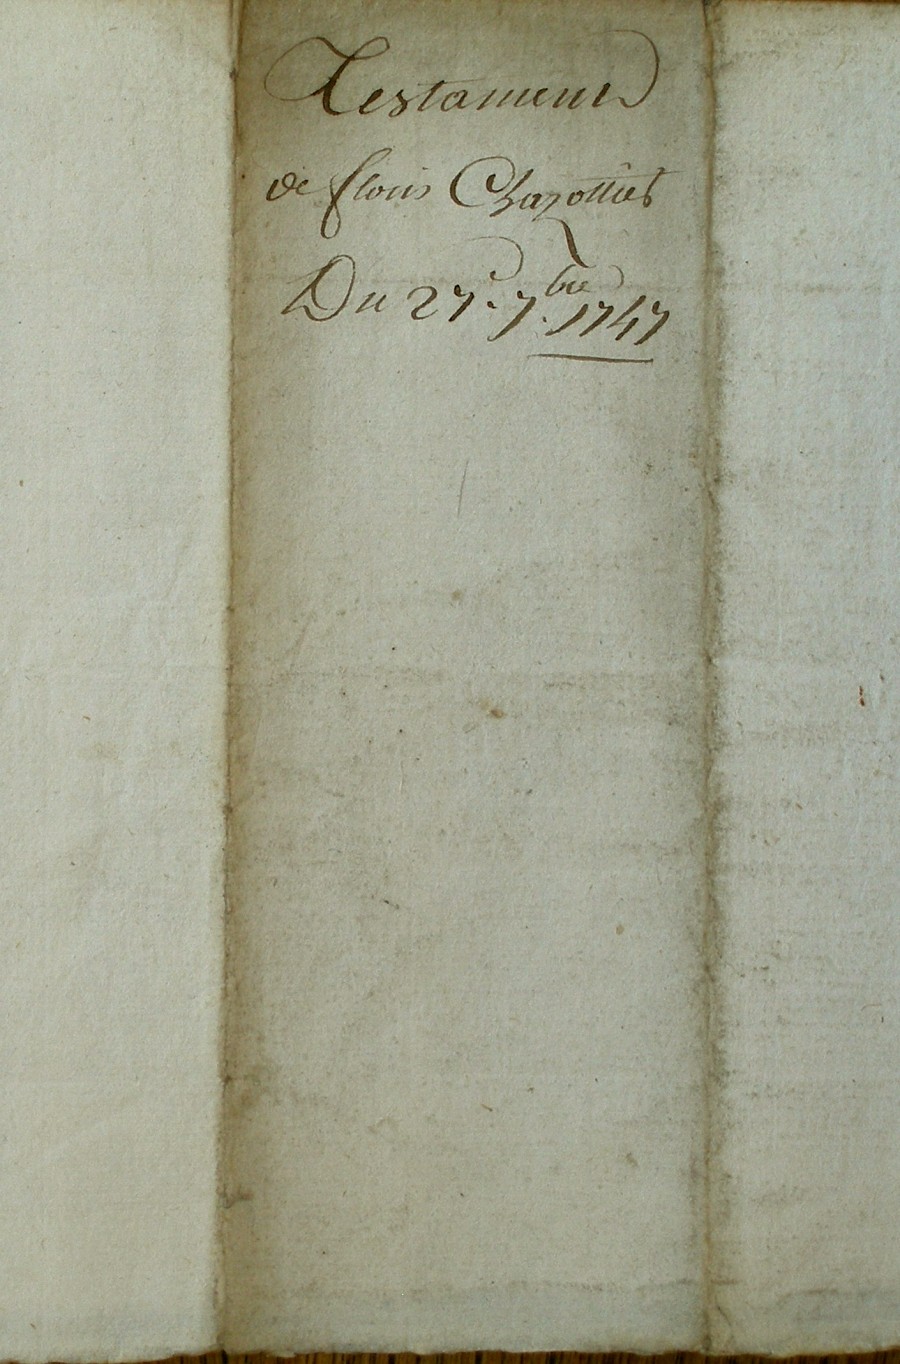 Testament
de flouis Chazottes
Du 27e. 7bre. 1747